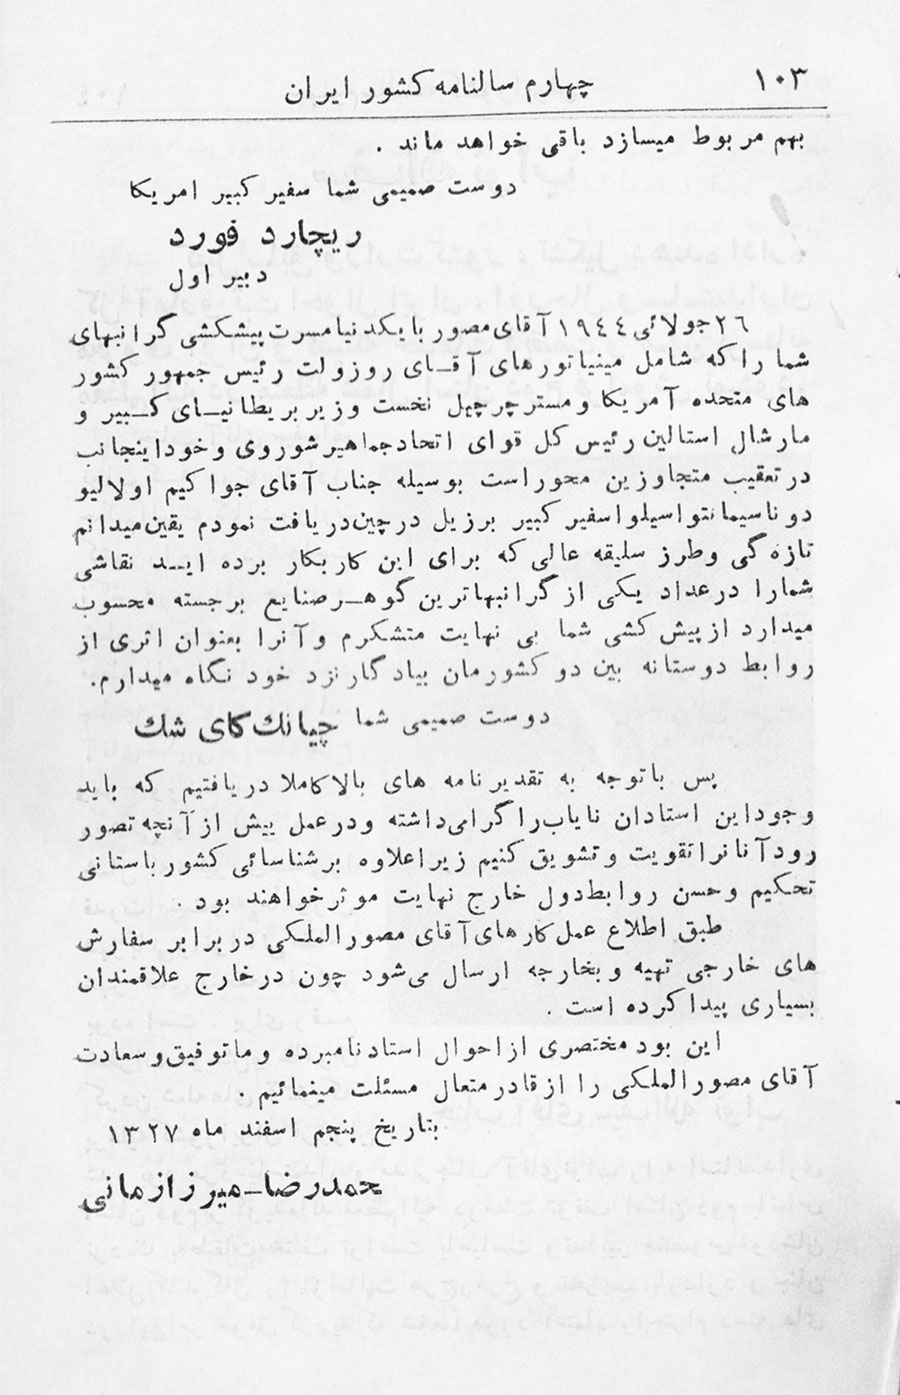 ۱۰۳
چهارم سالنامه کشور ایران
بهم مربوط میسازد باقی خواهد ماند .
دوست صمیمی شما سفیر کبیر امریکا
ریچارد فورد
دبیر اول
۲۶ جولائی ۱۹٤٤ آقای مصور با یکدنیا مسرت پیشکشی گرانبهای
شما را که شامل مینیاتورهای آقـای روزولت رئیس جمهور کشور
های متحده آمریکا و مستر چرچیل نخست وزیر بریطانیـای کـبیر و
مارشال استالین رئیس کل قوای اتحاد جماهیر شوروی و خود اینجانب
در تعقیب متجاوزین محور است بوسیله جناب آقای جواکیم اولالیو
دو ناسیمانتو اسیلوا سفیر کبیر برزیل در چین دریافت نمودم یقین میدانم
تازه گی و طرز سلیقه عالی که برای این کار بکار برده ایـد نقاشی
شما را در عداد یکی از گرانبهاترین گوهـر صنایع برجسته محسوب
میدارد از پیش کشی شما بی نهایت متشکرم و آنرا بعنوان اثری از
روابط دوستانه بین دو کشورمان بیاد گار نزد خود نگاه میدارم.
دوست صمیمی شما چیانك کای شك
پس با توجه به تقدیر نامه های بالا کاملا دریافتیم که باید
وجود این استادان نایاب را گرامی داشته و در عمل بیش از آنچه تصور
رود آنانرا تقویت و تشویق کنیم زیرا علاوه بر شناسائی کشور باستانی
تحکیم و حسن روابط دول خارج نهایت موثر خواهند بود .
طبق اطلاع عمل کارهای آقای مصور الملکی در برابر سفارش
های خارجی تهیه و بخارجه ارسال می شود چون در خارج علاقمندان
بسیاری پیدا کرده است .
این بود مختصری از احوال استاد نامبرده و ما توفیق و سعادت
آقای مصور الملکی را از قادر متعال مسئلت مینمائیم .
بتاریخ پنجم اسفند ماه ۱۳۲۷
حمدرضا-میرزازمانی